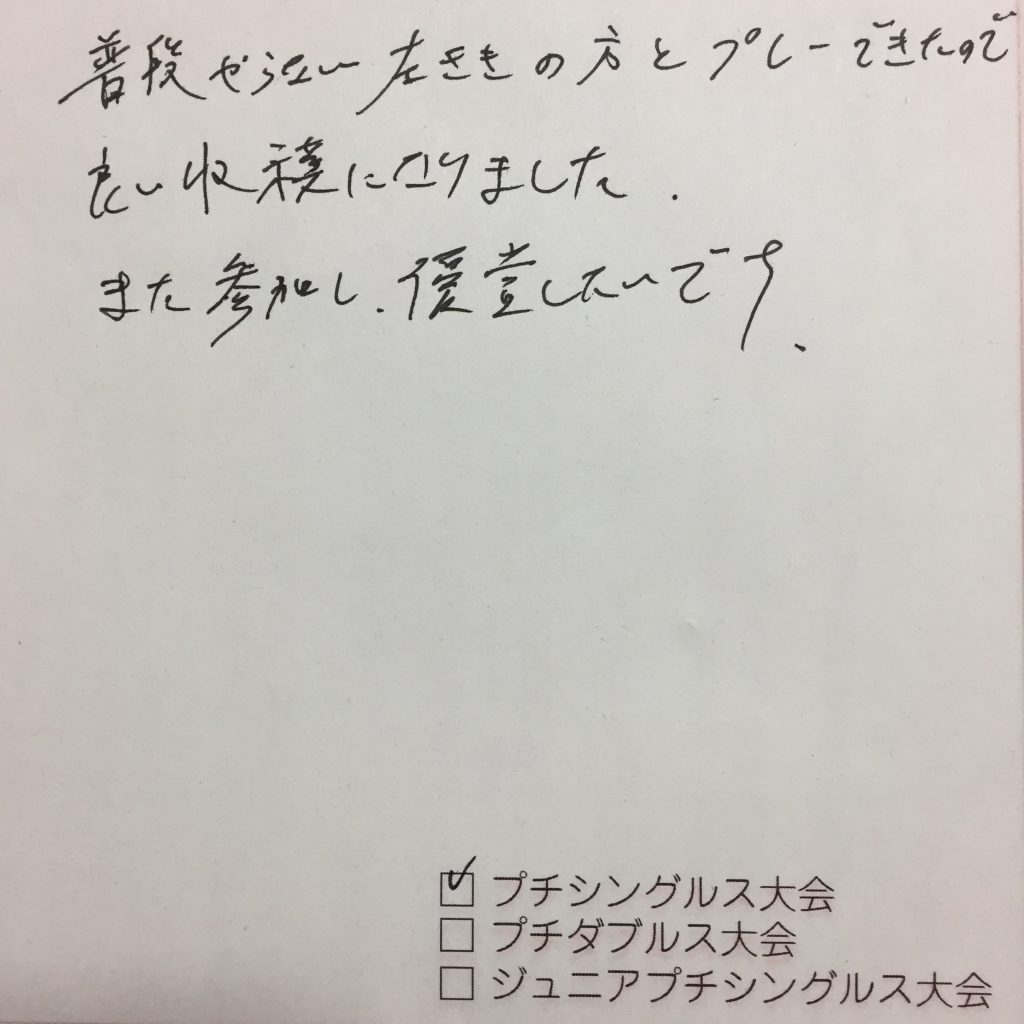 普段やらない左ききの方とプレーできたので
良い収穫になりました.
また参加し、優勝したいです、
☑ プチシングルス大会
☐ プチダブルス大会
☐ ジュニアプチシングルス大会